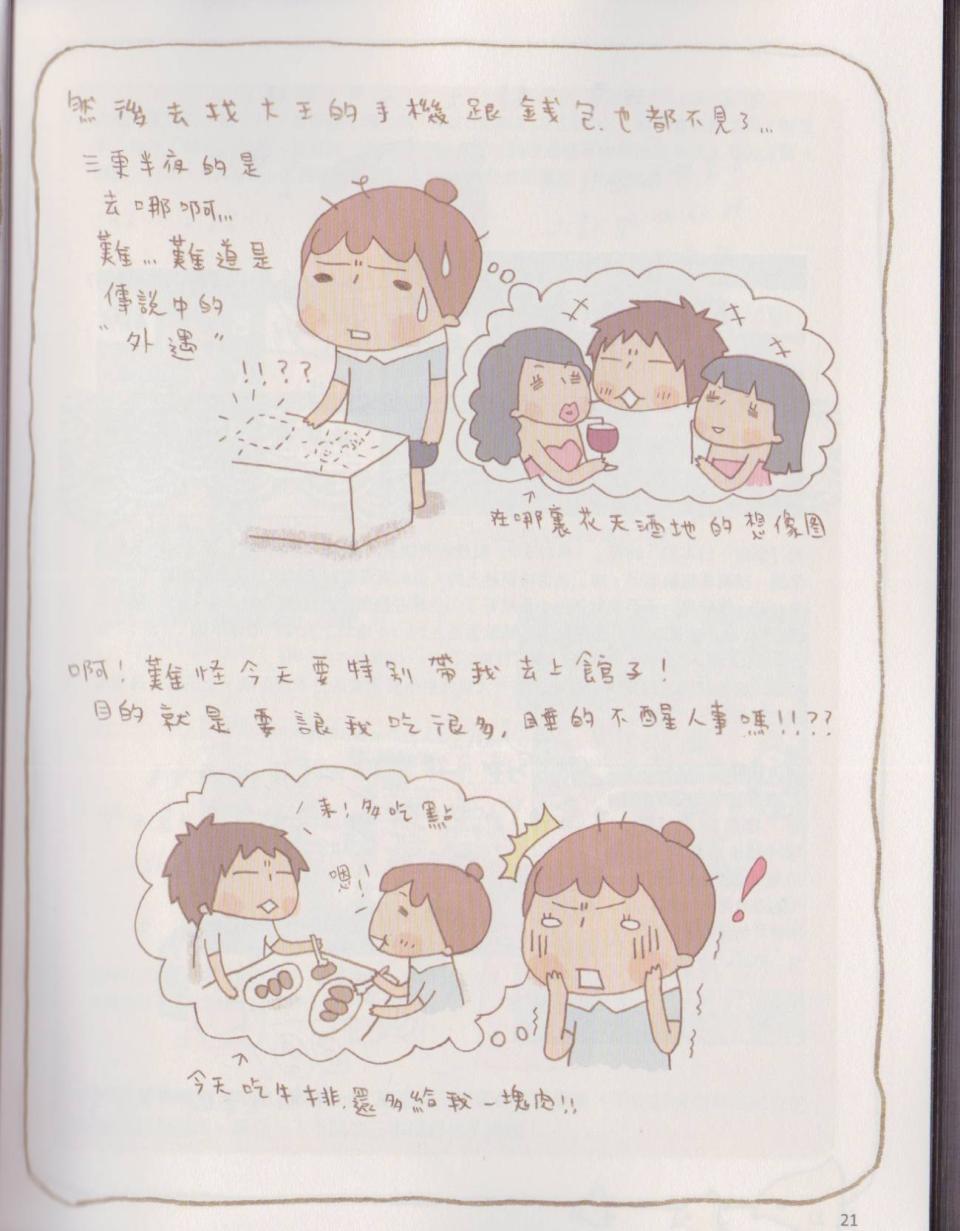 然後去找大王的手機跟錢包.也都不見了...
三更半夜的是
去哪啊...
難...難道是
傳說中的
"外遇"
!!??
在哪裏花天酒地的想像圖
啊!難怪今天要特別帶我去上館子!
目的就是要讓我吃很多,睡的不醒人事嗎!!??
來!多吃點
嗯!
今天吃牛排.還多給我一塊肉!!
21